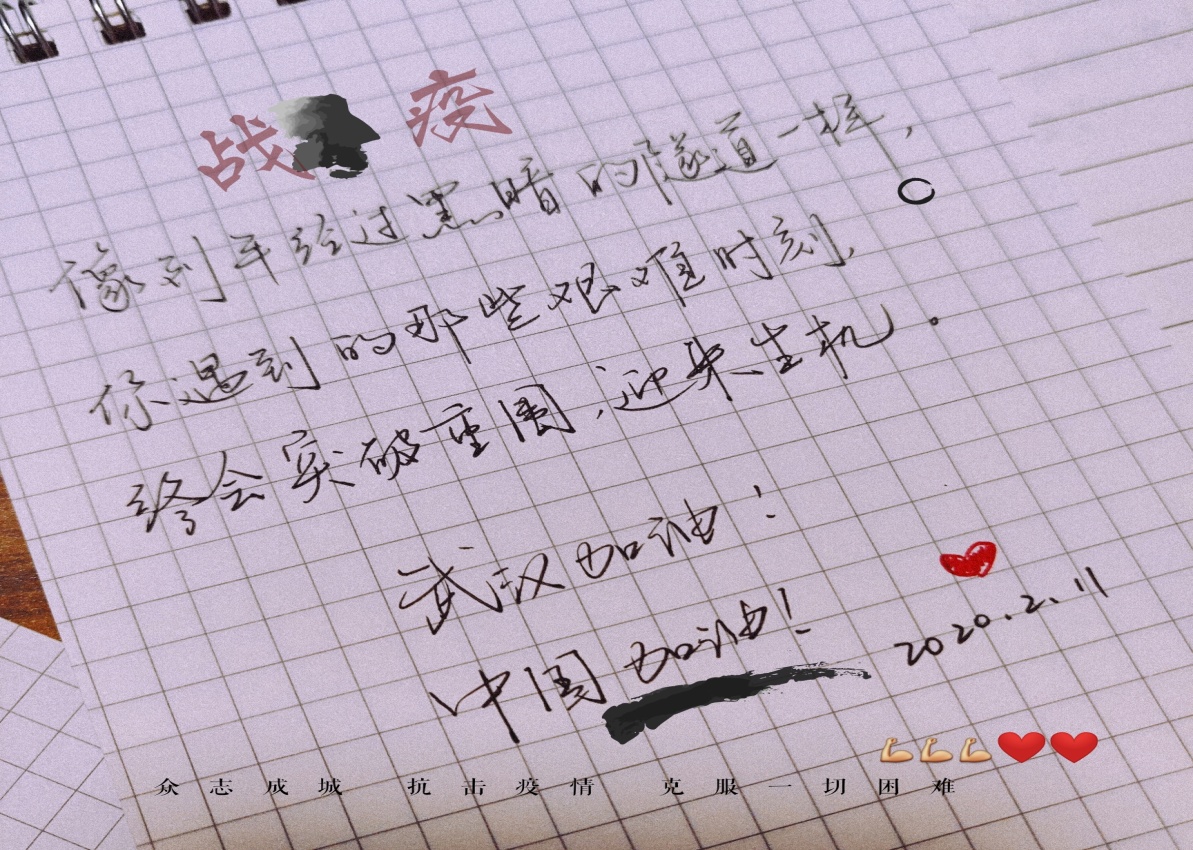 战疫
像列车经过黑暗的隧道一样，
你遇到的那些艰难时刻，
终会突破重围，迎来生机。
武汉加油！
中国加油！
2020.2.11
💪💪💪❤️❤️
众志成城 抗击疫情 克服一切困难